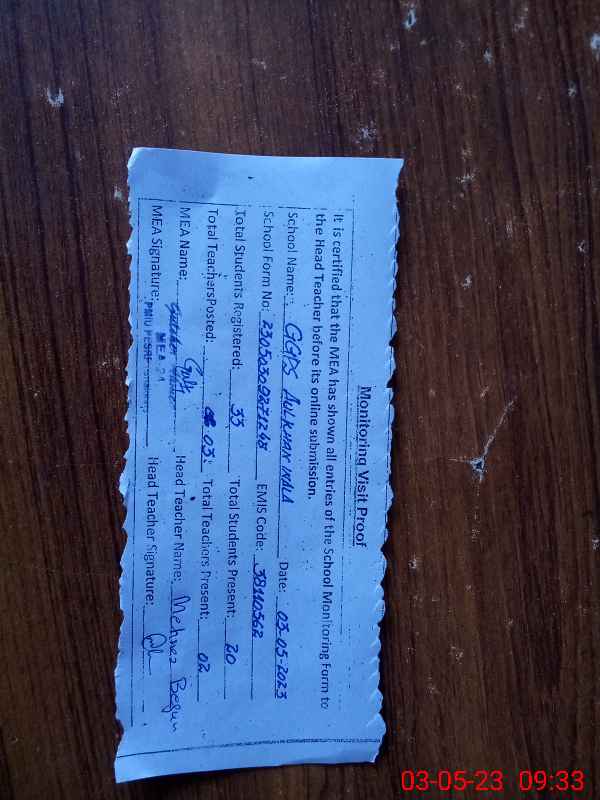 Monitoring Visit Proof
It is certified that the MEA has shown all entries of the School Monitoring Form to
the Head Teacher before its online submission.
School Name: GGPS Date: 03-05-2023
School Form No: EMIS Code: 38110362
Total Students Registered: 33 Total Students Present: 20
Total TeachersPosted: 03 Total Teachers Present: 02
MEA Name: Head Teacher Name: Mehnaz Begum
MEA Signature: Head Teacher Signature:
MEA 21
03-05-23 09:33